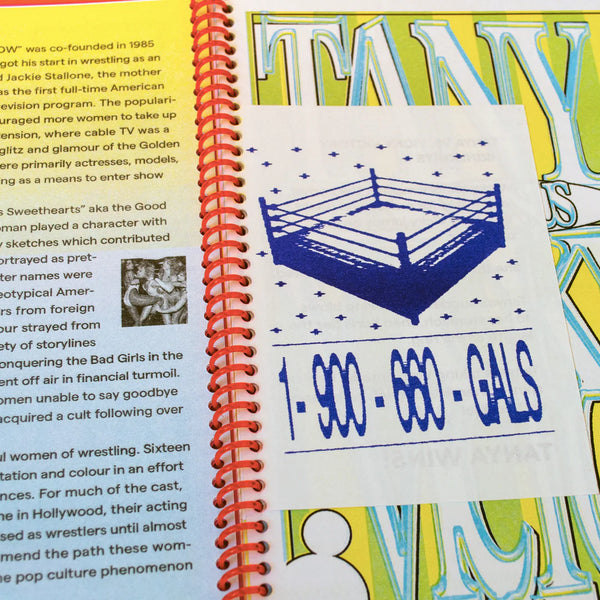 OW” was co-founded in 1985
got his start in wrestling as an
d Jackie Stallone, the mother
as the first full-time American
levision program. The populari-
ouraged more women to take up
tension, where cable TV was a
glitz and glamour of the Golden
ere primarily actresses, models,
ing as a means to enter show
s Sweethearts” aka the Good
oman played a character with
y sketches which contributed
ortrayed as pret-
ter names were
eotypical Amer-
ers from foreign
our strayed from
ety of storylines
onquering the Bad Girls in the
ent off air in financial turmoil.
omen unable to say goodbye
acquired a cult following over
ul women of wrestling. Sixteen
tation and colour in an effort
nces. For much of the cast,
ne in Hollywood, their acting
sed as wrestlers until almost
mend the path these wom-
e pop culture phenomenon
TANY
S
1-900-660-GALS
TANYA WINS!
VIC